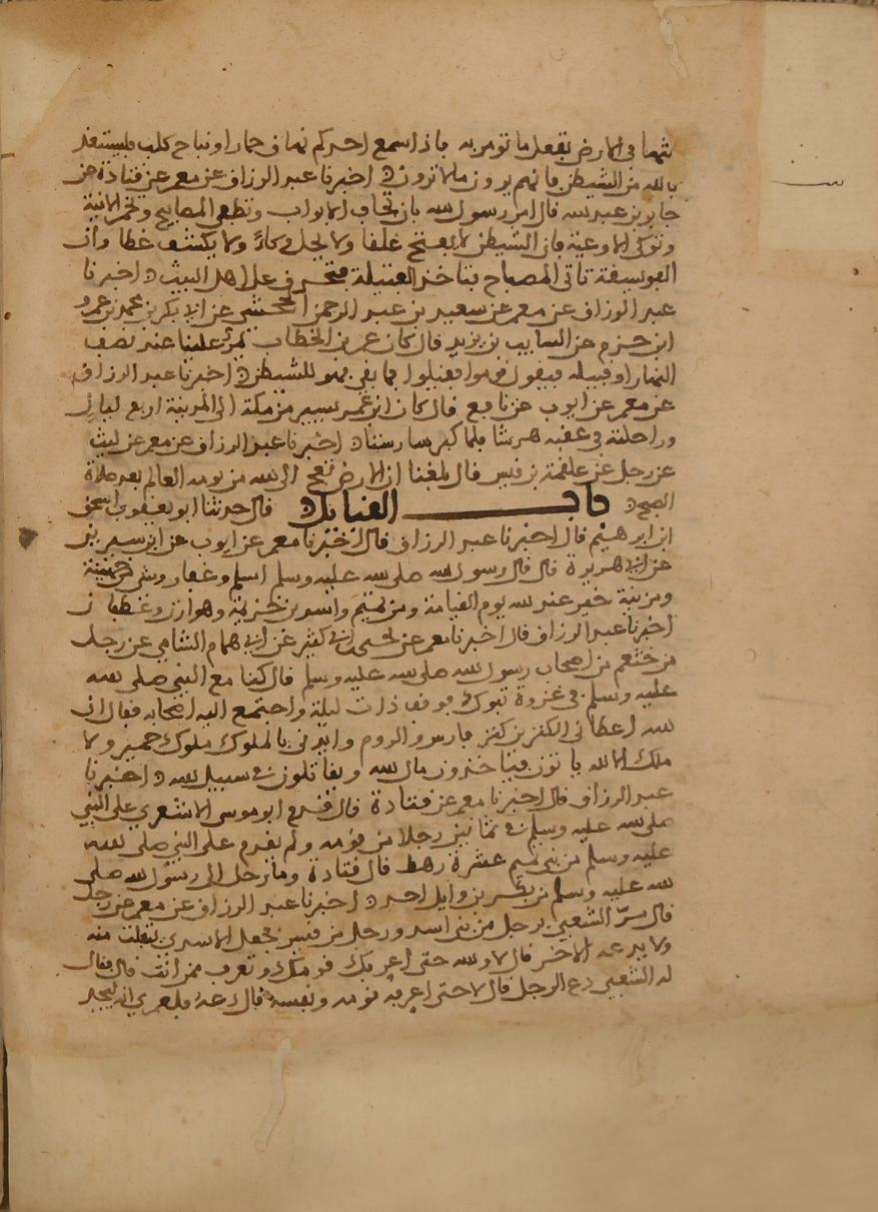 يثها في الارض تفعل ما تومر به فاذا سمع احدكم نهاق حمار او نباح كلب فليستعذ
بالله من الشيطن فانهم يرون ما لا ترون اخبرنا عبد الرزاق عن معمر عن قتادة عن
جابر بن عبد الله قال امر رسول الله بان تجاف الابواب وتطفى المصابيح وتخمر الانية
وتوكى الاوعية فان الشيطن لا يفتح غلقا ولا يحل وكاء ولا يكشف غطا وان
الفويسقة تاتي المصباح فتاخذ الفتيلة فتحرق على اهل البيت اخبرنا
عبد الرزاق عن معمر عن سعيد بن عبد الرحمن الجحشي عن ابي بكر بن محمد بن عمرو
ابن حزم عن السايب بن يزيد قال كان عمر بن الخطاب يمر علينا عند نصف
النهار او قبيله فيقول قوموا فقيلوا فما بقي فهو للشيطن اخبرنا عبد الرزاق
عن معمر عن ايوب عن نافع قال كان ابن عمر يسير من مكة الى المدينة اربع ليال
وراحلته في عقبه هرشا فلما كبر سار ستا اخبرنا عبد الرزاق عن معمر عن ليث
عن رجل عن علقمة بن قيس قال بلغنا ان الارض تعج الى الله من نومه العالم بعد صلاة
الصبح باب القبايل قال حدثنا ابو يعقوب اسحق
ابن ابرهيم قال اخبرنا عبد الرزاق قال اخبرنا معمر عن ايوب عن ابن سيرين
عن ابي هريرة قال قال رسول الله صلى الله عليه وسلم اسلم وغفار وشي من جهينة
ومزينة خير عند الله يوم القيامة ومن تميم واسد بن خزيمة وهوازن وغطفان
اخبرنا عبد الرزاق قال اخبرنا معمر عن يحيى بن ابي كثير عن ابي همام الشامي عن رجل
من خثعم من اصحاب رسول الله صلى الله عليه وسلم قال كنا مع النبي صلى الله
عليه وسلم في غزوة تبوك فوقف ذات ليلة واجتمع اليه اصحابه فقال ان
الله اعطاني الكنزين كنز فارس والروم وايدني بالملوك ملوك حمير ولا
ملك الا لله ياتون فياخذون مال الله ويقاتلون في سبيل الله اخبرنا
عبد الرزاق قال اخبرنا معمر عن قتادة قال قدم ابو موسى الاشعري على النبي
صلى الله عليه وسلم في ثمانين رجلا من قومه ولم يقدم على النبي صلى الله
عليه وسلم من بني تميم عشرة رهط قال قتادة وما رحل الى رسول الله صلى
الله عليه وسلم من بكر بن وايل احد اخبرنا عبد الرزاق عن معمر عن رجل
قال مر الشعبي برجل من بني اسد ورجل من قيس فجعل الاسدي يتفلت منه
ولا يدعه الاخر قال لا والله حتى اعرفك قومك وتعرف ممن انت قال فقال
له الشعبي دع الرجل قال لا حتى اعرفه قومه ونفسه قال دعه فلعمري انه ليجد